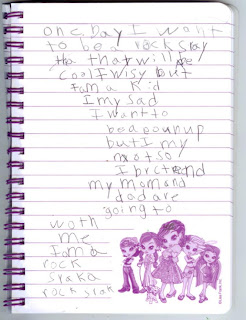 on c Day I wont
to be a rock sray
tha that will be
cool I wisy but
I am a kid
I my sad
I want to
be a pounup
but I my
not so
I prctend
my mom and
dad are
going to
woth
me
I am a
rock
sraka
rock srak